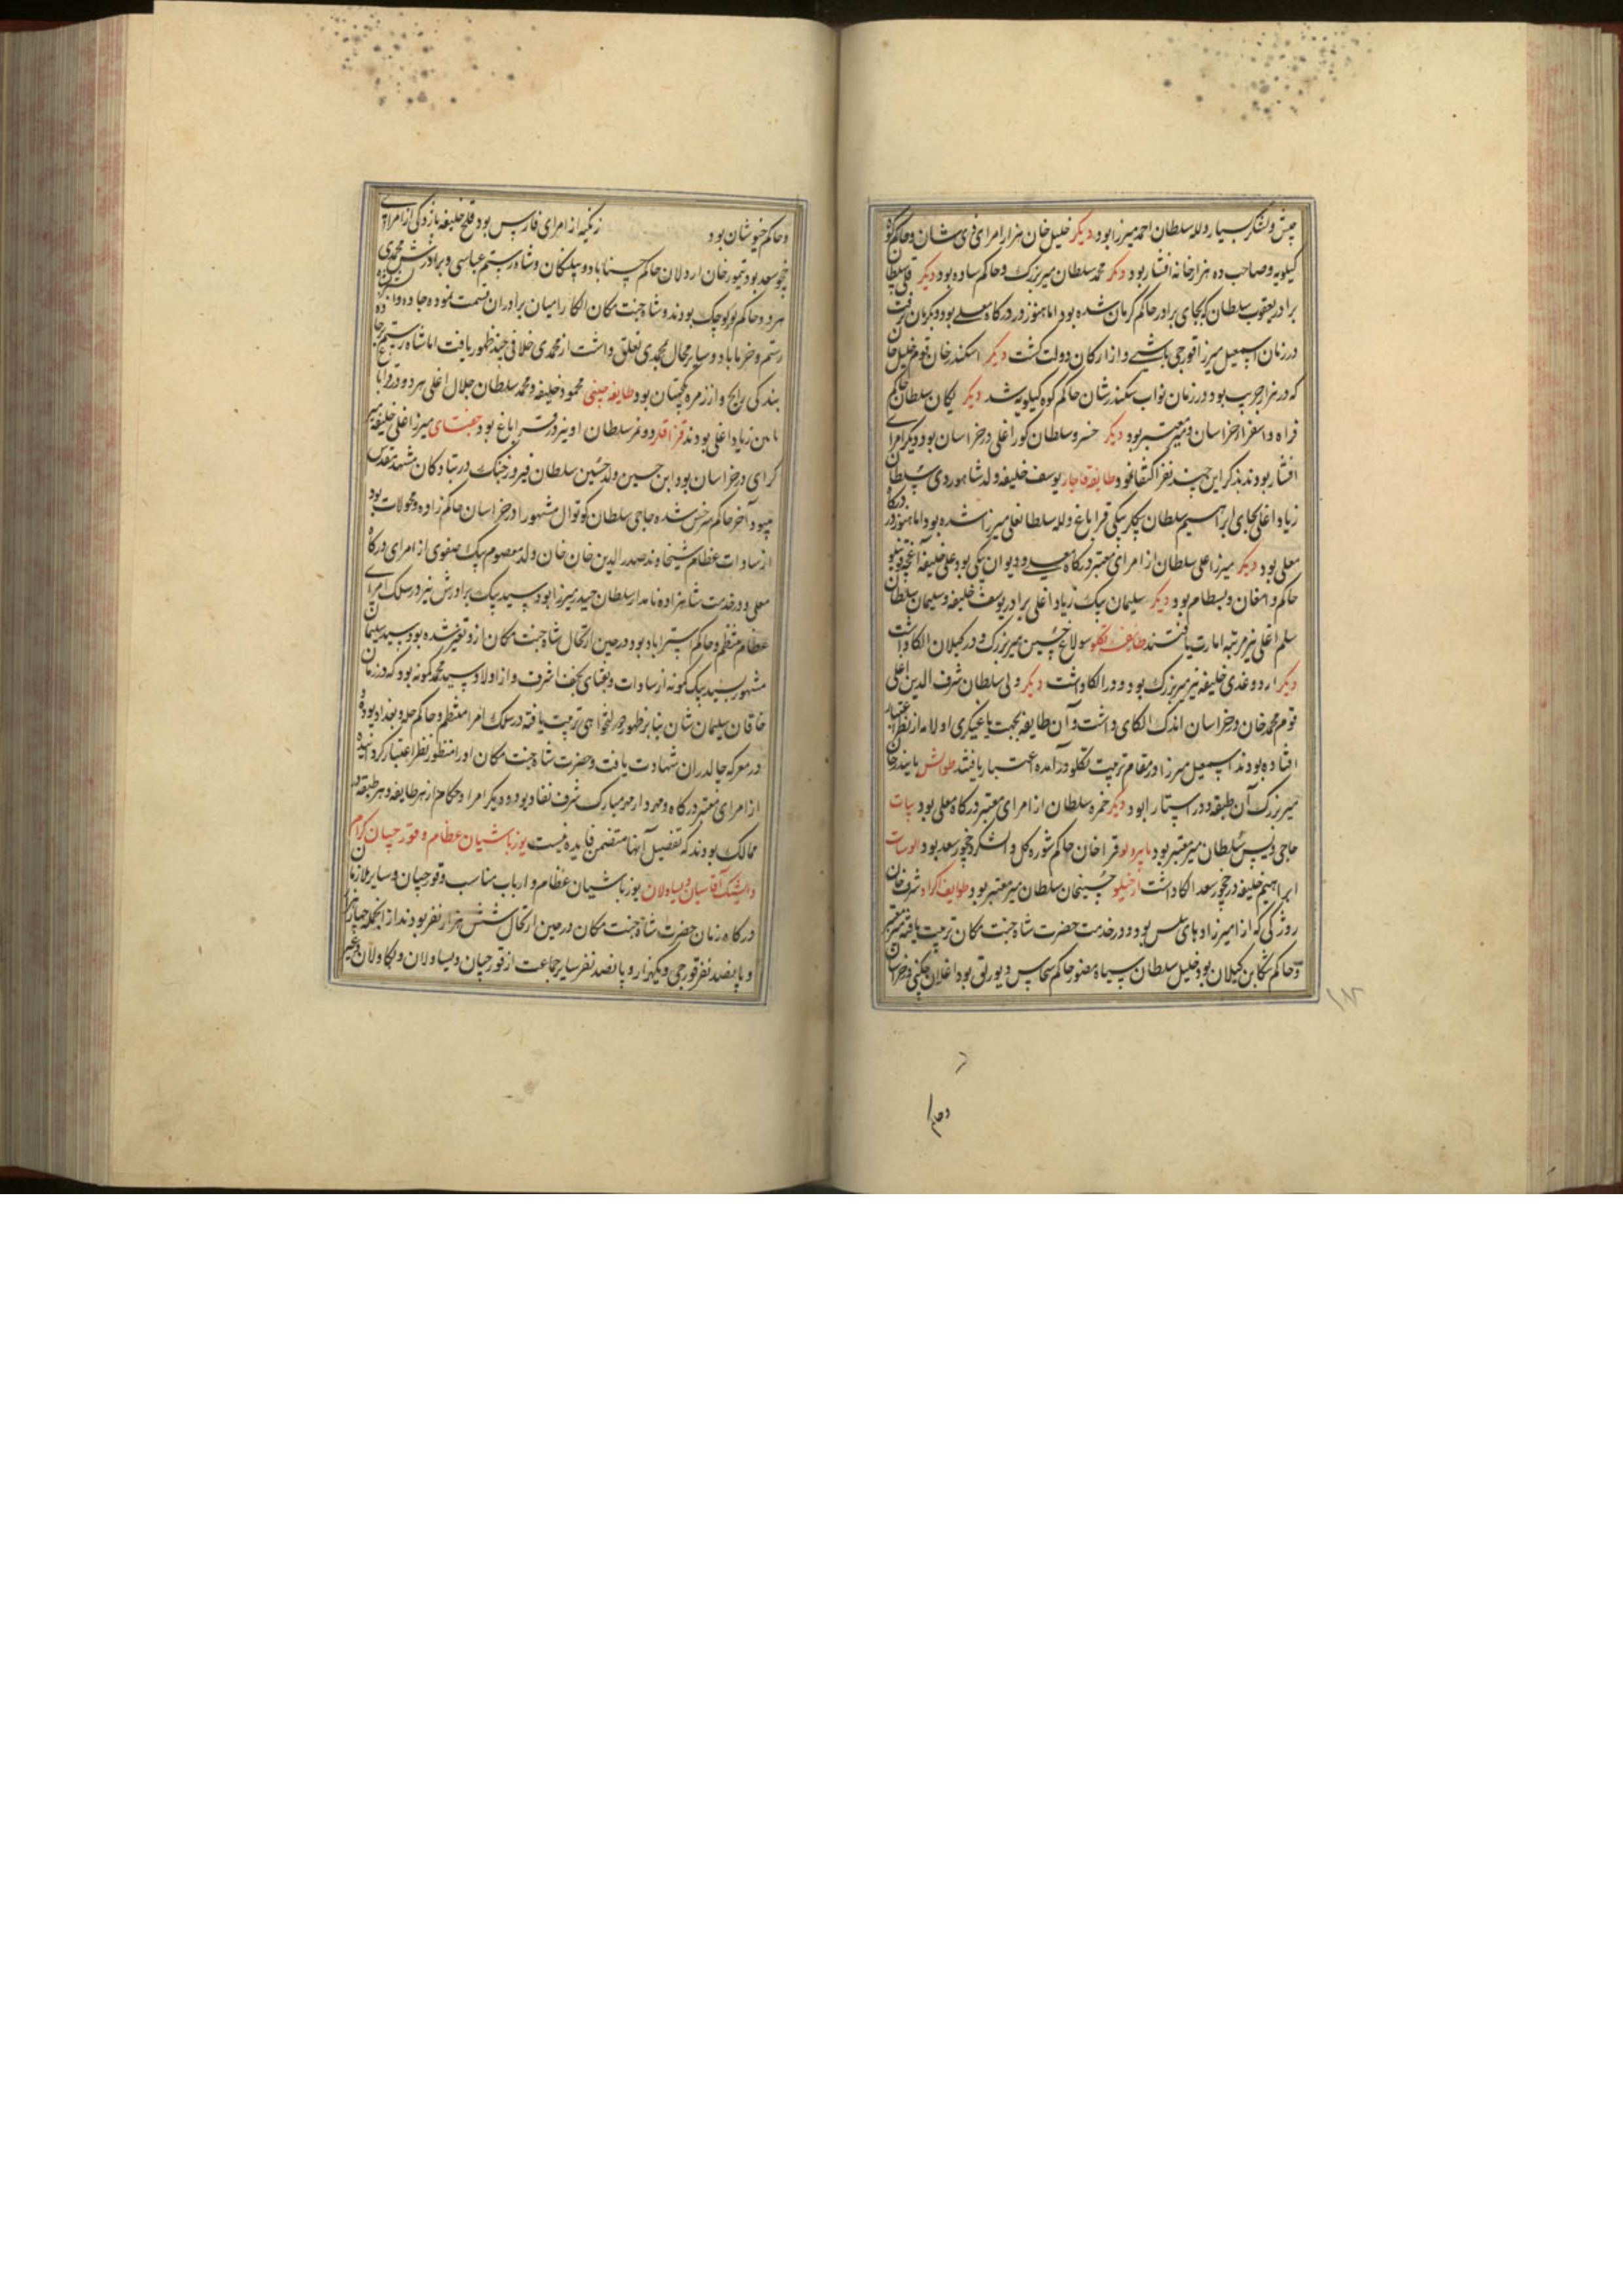 جیش و لشکر بسیار و لله سلطان احمد میرزا بود دیگر خلیل خان هزار امرای ذی شان و حاکم کوه
کیلویه و صاحب ده هزار خانه افشار بود دیگر محمد سلطان میر بزرگ و حاکم ساوه بود دیگر قلی سلطان
برادر یعقوب سلطان که بجای برادر حاکم کرمان شده بود اما هنوز در درگاه معلی بود و بکرمان نرفت
در زمان اسمعیل میرزا قورچی باشی و از ارکان دولت گشت دیگر اسکندر خان قوم خلیل خان
که در هزار جریب بود و در زمان نواب سکندر شان حاکم کوه کیلویه شد دیگر یکان سلطان حاکم
فراه و اسفزار خراسان و میر معتبر بود دیگر خسرو سلطان کور اغلی در خراسان بود و دیگر امرای
افشار بودند بذکر این چند نفر اکتفا نمود طایفه قاجار یوسف خلیفه ولد شاهوردی سلطان
زیاد اغلی بجای ابراهیم سلطان بیکلر بیکی قراباغ و لله سلطانعلی میرزا شده بود اما هنوز در درگاه
معلی بود دیگر میرزا علی سلطان از امرای معتبر درگاه معلی و دیوان بیکی بود علی خلیفه آغچه قوینلو
حاکم دامغان و بسطام بود دیگر سلیمان بیک زیاد اغلی برادر یوسف خلیفه و سلیمان سلطان
سلم اغلی نیز مرتبه امارت یافتند طایفه تکلو سولاغ حسین میر بزرگ و در کیلان الکا داشت
دیگر اردوغدی خلیفه نیز میر بزرگ بود و در الکا داشت دیگر ولی سلطان شرف الدین اغلی
قوم محمد خان در خراسان اندک الکای داشت و آن طایفه بجهت یاغیکری اولامه از نظر اعتبار
افتاده بودند اسمعیل میرزا در مقام تربیت تکلو درآمده اعتبار یافتند طوالش بایندر خان
میر بزرگ آن طبقه و در آستارا بود دیگر حمزه سلطان از امرای معتبر درگاه معلی بود بیات
حاجی ویس سلطان میر معتبر بود بایبردلو قرا خان حاکم شوره کل و الشکرد چخور سعد بود الوسات
ابراهیم خلیفه در چخور سعد الکا داشت ارخیلو حسینخان سلطان میر معتبر بود طوایف اکراد شرف خان
روزکی که از امیرزادهای بدلیس بود و در خدمت حضرت شاه جنت مکان تربیت یافته میر معتبر
و حاکم تنکابن کیلان بود خلیل سلطان سیاه منصور حاکم سجاس و سورلق بود اغلان چکنی در خراسان
وحاکم
و حاکم خبوشان بود زنکنه از امرای فارس بود قلج خلیفه پازوکی از امرای
چخور سعد بود تیمور خان اردلان حاکم حسناباد و پلنکان و شاه رستم عباسی و برادرش محمدی
هر دو حاکم لر کوچک بودند و شاه جنت مکان الکا را میان برادران قسمت نموده
رستم و خرماباد و سایر محال بمحمدی تعلق داشت از محمدی خلافی چند ظهور یافت اما شاه رستم
بندکی راسخ و از زمره یکجهتان بود طایفه چپنی محمود خلیفه و محمد سلطان جلال اغلی هر دو
زیاد اغلی بودند قزاقلر دونمز سلطان او نیز در قراباغ بود جغتای میرزا علی خلیفه
کرای در خراسان بود ابن حسین ولد حسین سلطان فیروز جنک در رستاد کان مشهد مقدس
میبود آخر حاکم سرخس شده حاجی سلطان کوتوال مشهور در خراسان حاکم زاوه و محولات بود
از سادات عظام شیخاوند صدرالدین خان خان ولد معصوم بیک صفوی از امرای درگاه
معلی و در خدمت شاهزاده نامدار سلطان حیدر میرزا بود سید بیک برادرش نیز در سلک امرای
عظام منتظم و حاکم استراباد بود در حین ارتحال شاه جنت مکان ازو تغیر شده بود سید سلیمان
مشهور بسید بیک کمونه از سادات و نقبای نجف اشرف و از اولاد سید محمد کمونه بود که در زمان
خاقان سلیمان شان بنا بر ظهور دولتخواهی تربیت یافته در سلک امرا منتظم و حاکم حله و بغداد بوده
در معرکه چالدران شهادت یافت و حضرت شاه جنت مکان او را منظور نظر اعتبار کردانیده
از امرای معتبر درگاه و مهردار مهر مبارک شرف نفاد بود و دیگر امرا و حکام از هر طایفه و هر طبقه در
ممالک بودند که تفصیل آنها متضمن فایده نیست یوزباشیان عظام و قورچیان کرام
و ایشک آقاسیان و یساولان یوزباشیان عظام و ارباب مناسب و قورچیان و سایر ملازمان
درگاه زمان حضرت شاه جنت مکان در حین ارتحال شش هزار نفر بودند از انجمله چهار هزار
و پانصد نفر قورچی و یکهزار و پانصد نفر سایر جماعت از قورچیان و یساولان و بکاولان و غیر